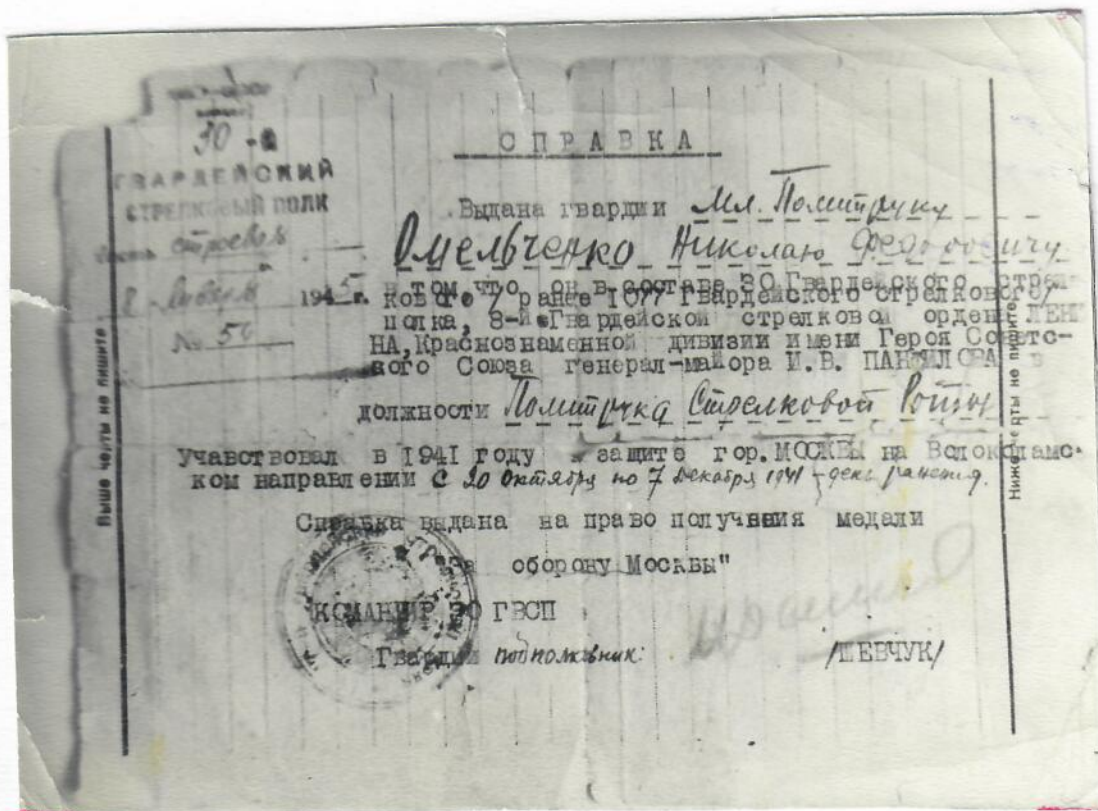 30-й
ГВАРДЕЙСКИЙ
СТРЕЛКОВЫЙ ПОЛК
Часть строевая
8 Января 1945 г.
№ 50
СПРАВКА
Выдана гвардии Мл. Политруку
Омельченко Николаю Федоровичу
в том что он в составе 30 Гвардейского стрел-
кового / ранее 1077 Гвардейского стрелкового/
полка, 8-й Гвардейской стрелковой ордена ЛЕНИ
НА, Краснознаменной дивизии имени Героя Советс-
кого Союза генерал-майора И.В. ПАНФИЛОВА в
должности Политрука Стрелковой Роты
Учавствовал в 1941 году в защите гор. МОСКВЫ на Волоколамс-
ком направлении с 20 октября по 7 декабря 1941 - день ранения.
Справка выдана на право получения медали
"За оборону Москвы"
КОМАНДИР 30 ГВСП
Гвардии подполковник: /ШЕВЧУК/
Выше черты не пишите
Ниже черты не пишите